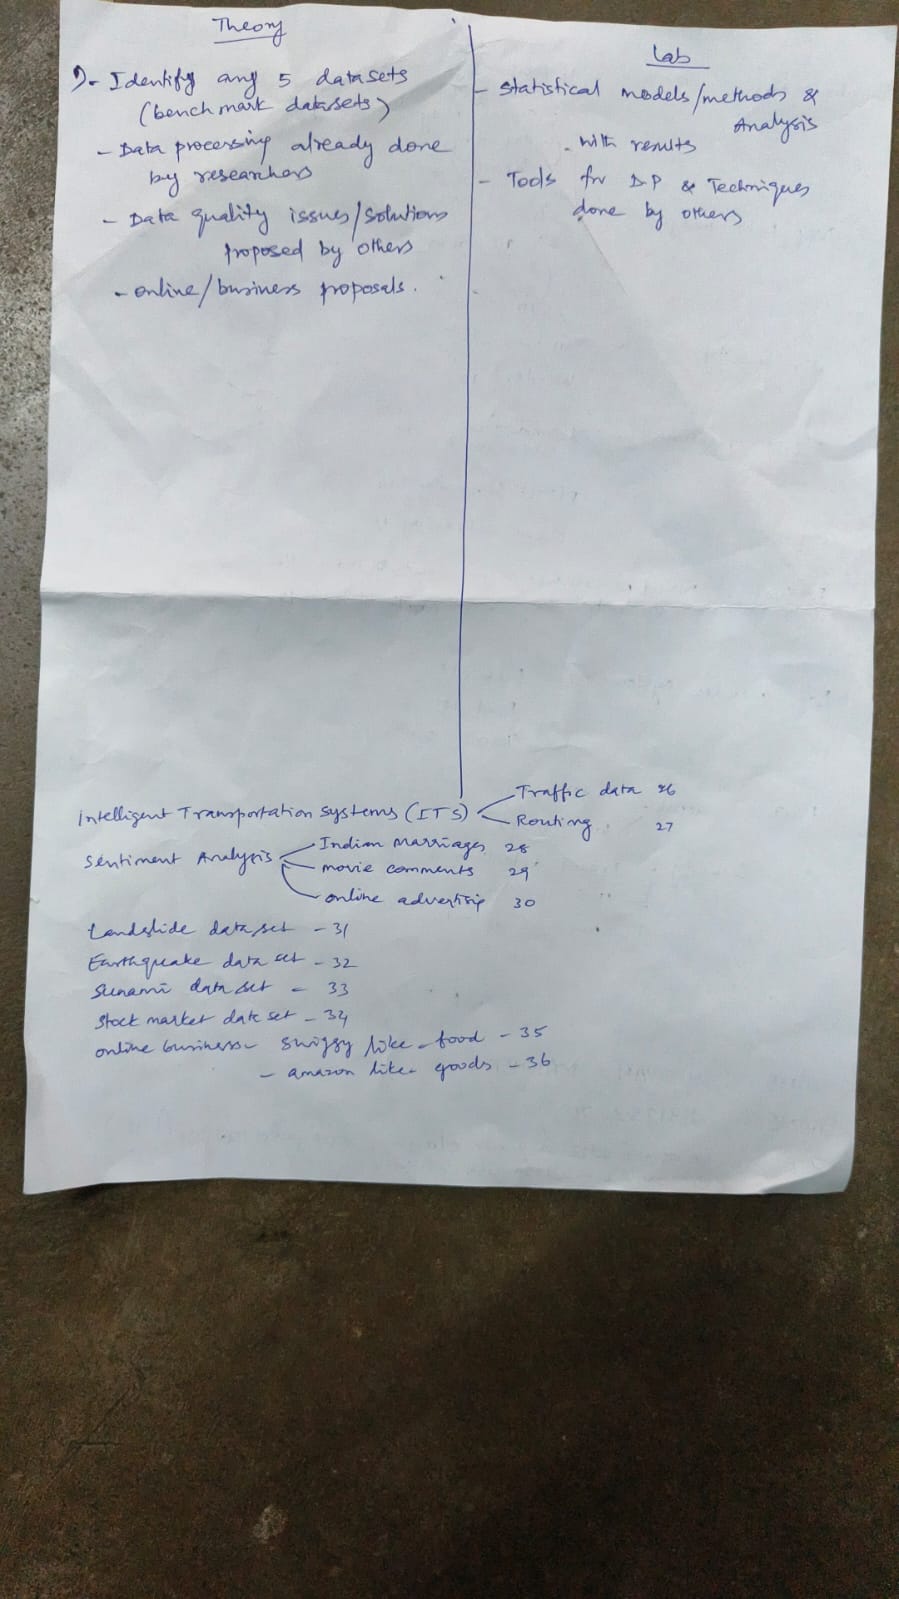 Theory
1)- Identify any 5 datasets
(benchmark datasets)
- Data processing already done
by researchers
- Data quality issues/solutions
proposed by others
- online/business proposals.
Lab
- Statistical models/methods &
Analysis
- with results
- Tools for D.P & Techniques
done by others
Intelligent Transportation Systems (ITS)
Traffic data 26
Routing 27
Sentiment Analysis
Indian Marriages 28
movie comments 29
online advertisig 30
Landslide dataset - 31
Earthquake data set - 32
Sunami data set - 33
Stock market data set - 34
online business - swiggy like - food - 35
- amazon like - goods - 36